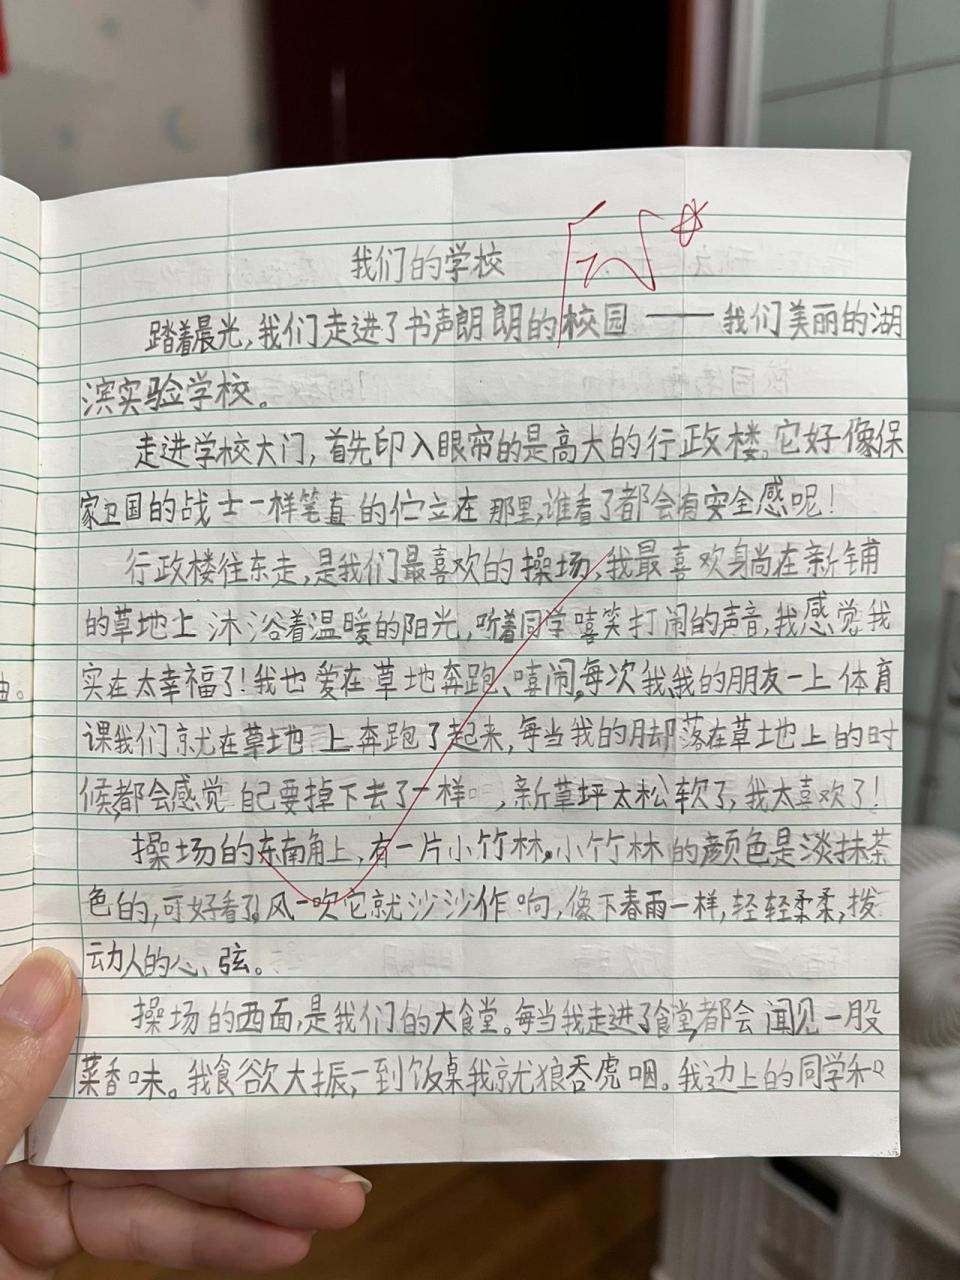 我们的学校
踏着晨光,我们走进了书声朗朗的校园——我们美丽的湖
滨实验学校。
走进学校大门,首先印入眼帘的是高大的行政楼。它好像保
家卫国的战士一样笔直的伫立在那里,谁看了都会有安全感呢!
行政楼往东走,是我们最喜欢的操场,我最喜欢身尚在新铺
的草地上沐浴着温暖的阳光,听着同学嘻笑打闹的声音,我感觉我
实在太幸福了!我也爱在草地奔跑、嘻闹,每次我我的朋友一上体育
课我们就在草地上奔跑了起来,每当我的脚落在草地上的时
候,都会感觉自己要掉下去了一样,新草坪太松软了,我太喜欢了!
操场的东南角上,有一片小竹林。小竹林的颜色是淡抹茶
色的,可好看了,风一吹它就沙沙作响,像下春雨一样,轻轻柔柔,拨
动人的心弦。
操场的西面,是我们的大食堂。每当我走进了食堂,都会闻见一股
菜香味。我食欲大振,一到饭桌我就狼吞虎咽。我边上的同学和
由。